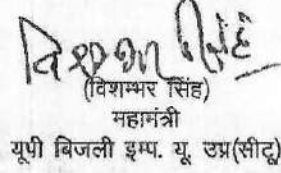 विशम्भर सिंह
(विशम्भर सिंह)
महामंत्री
यूपी बिजली इम्प. यू. उप्र(सीटू)